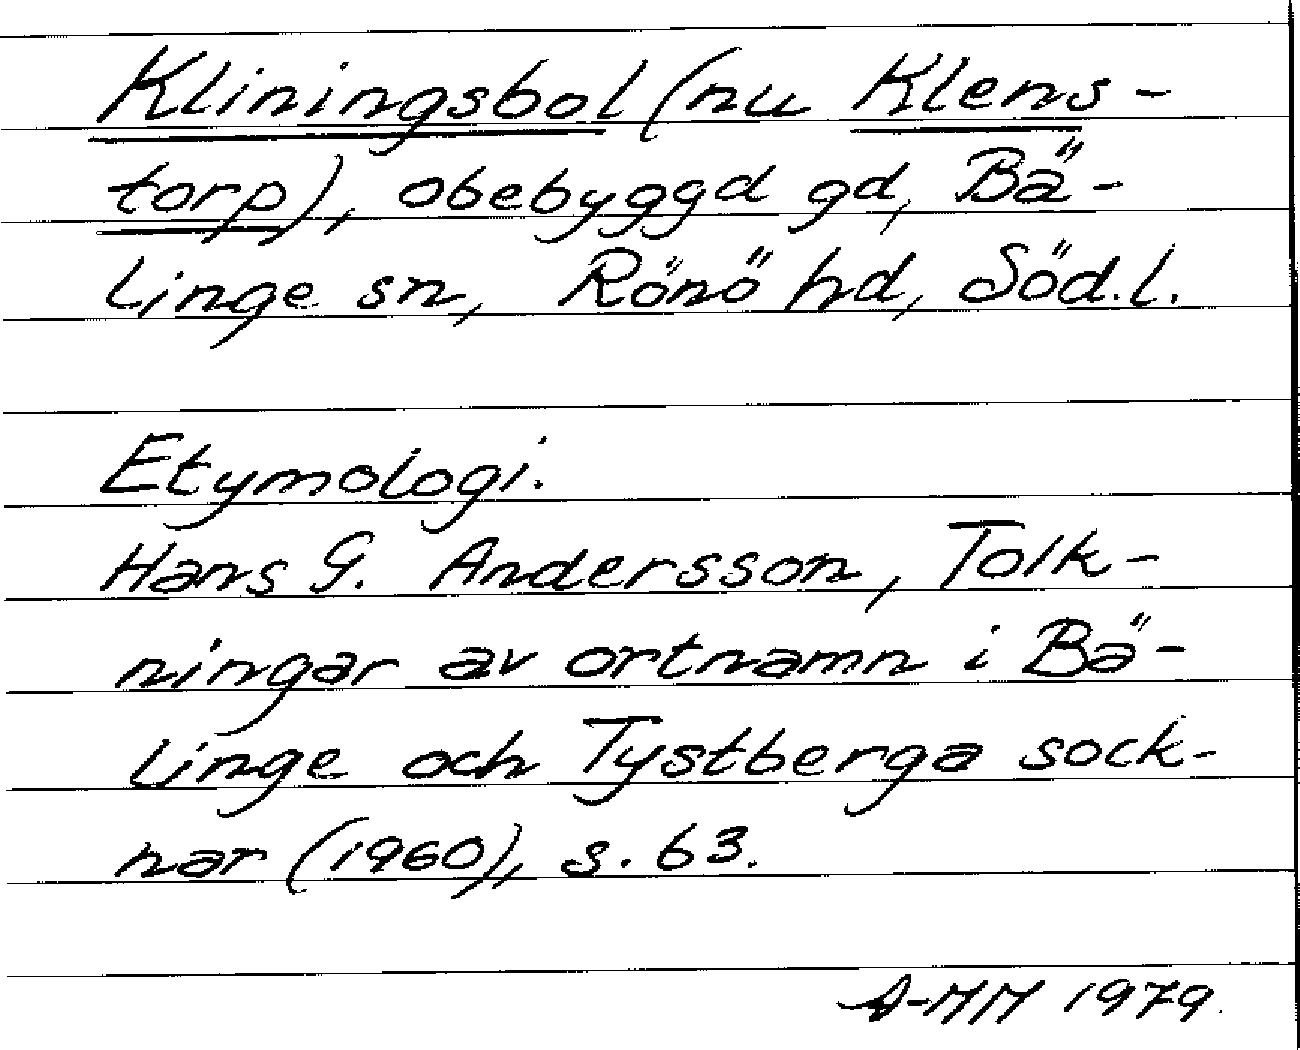 Kliningsbol (nu Klens-
torp), obebyggd gd, Bä-
linge sn, Rönö hd, Söd.l.
Etymologi.
Hans G. Andersson, Tolk-
ningar av ortnamn i Bä-
linge och Tystberga sock-
nar (1960), s. 63.
A-MM 1979.